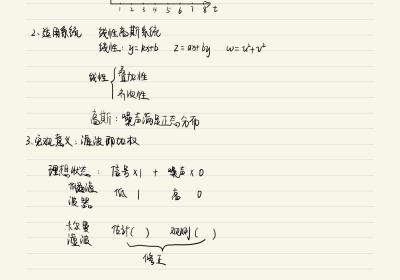 1 2 3 4 5 6 7 8 t
2、适用系统 线性高斯系统
线性：y=kx+b z=ax+by w=u²+v²
线性 { 叠加性
齐次性
高斯：噪声满足正态分布
3. 宏观意义：滤波即加权
理想状态：信号×1 + 噪声×0
低通滤波器 低 1 高 0
卡尔曼滤波 估计( ) 观测( )
修正